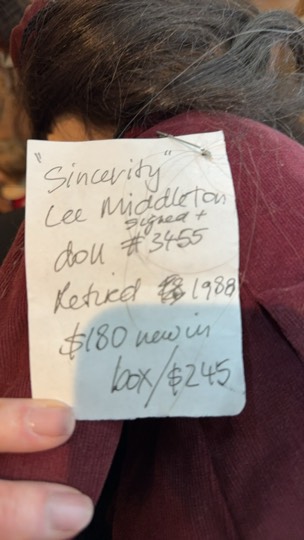 "Sincerity"
Lee Middleton
signed +
doll #3455
Retired 1988
$180 new in
box/$245